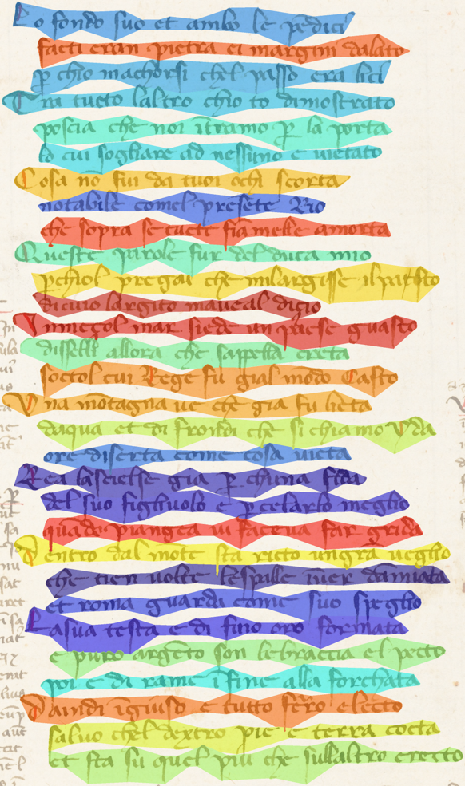 Lo fondo suo et ambo le pedici
facti eran pietra et margini dalato
p chio machorsi chel passo era lici
Tra tucto laltro chio to dimostrato
poscia che noi itramo p la porta
lo cui sogliare ad nessuno e uietato
Cosa no fu da tuoi ochi scorta
notabile comel presete Rio
che sopra se tucte fiamelle amorta
Queste parole fur del duca mio
pchiol pregai che milargisse il pasto
di cui largito maueual disio
In meçol mar siede un paese guasto
disselli allora che sappella creta
socto l cui Rege fu gial modo casto
Una motagna ue che gia fu lieta
daqua et di frondi che si chiamo Yda
ore diserta come cosa uieta
Rea la sciese gia p chuna fida
del suo figliuolo e p celarlo meglio
quado piangea ui faceua far grida
Dentro dal mote sta ricto un gra ueglio
che tien uolte le spalle iuer damiata
et roma guarda come suo speglio
La sua testa e di fino oro formata
e puro argeto son le braccia el pecto
poi e di rame ifine alla forchata
Da indi i giuso e tutto ferro electo
saluo chel dextro pie e terra cocta
et sta su quel piu che sullaltro erecto